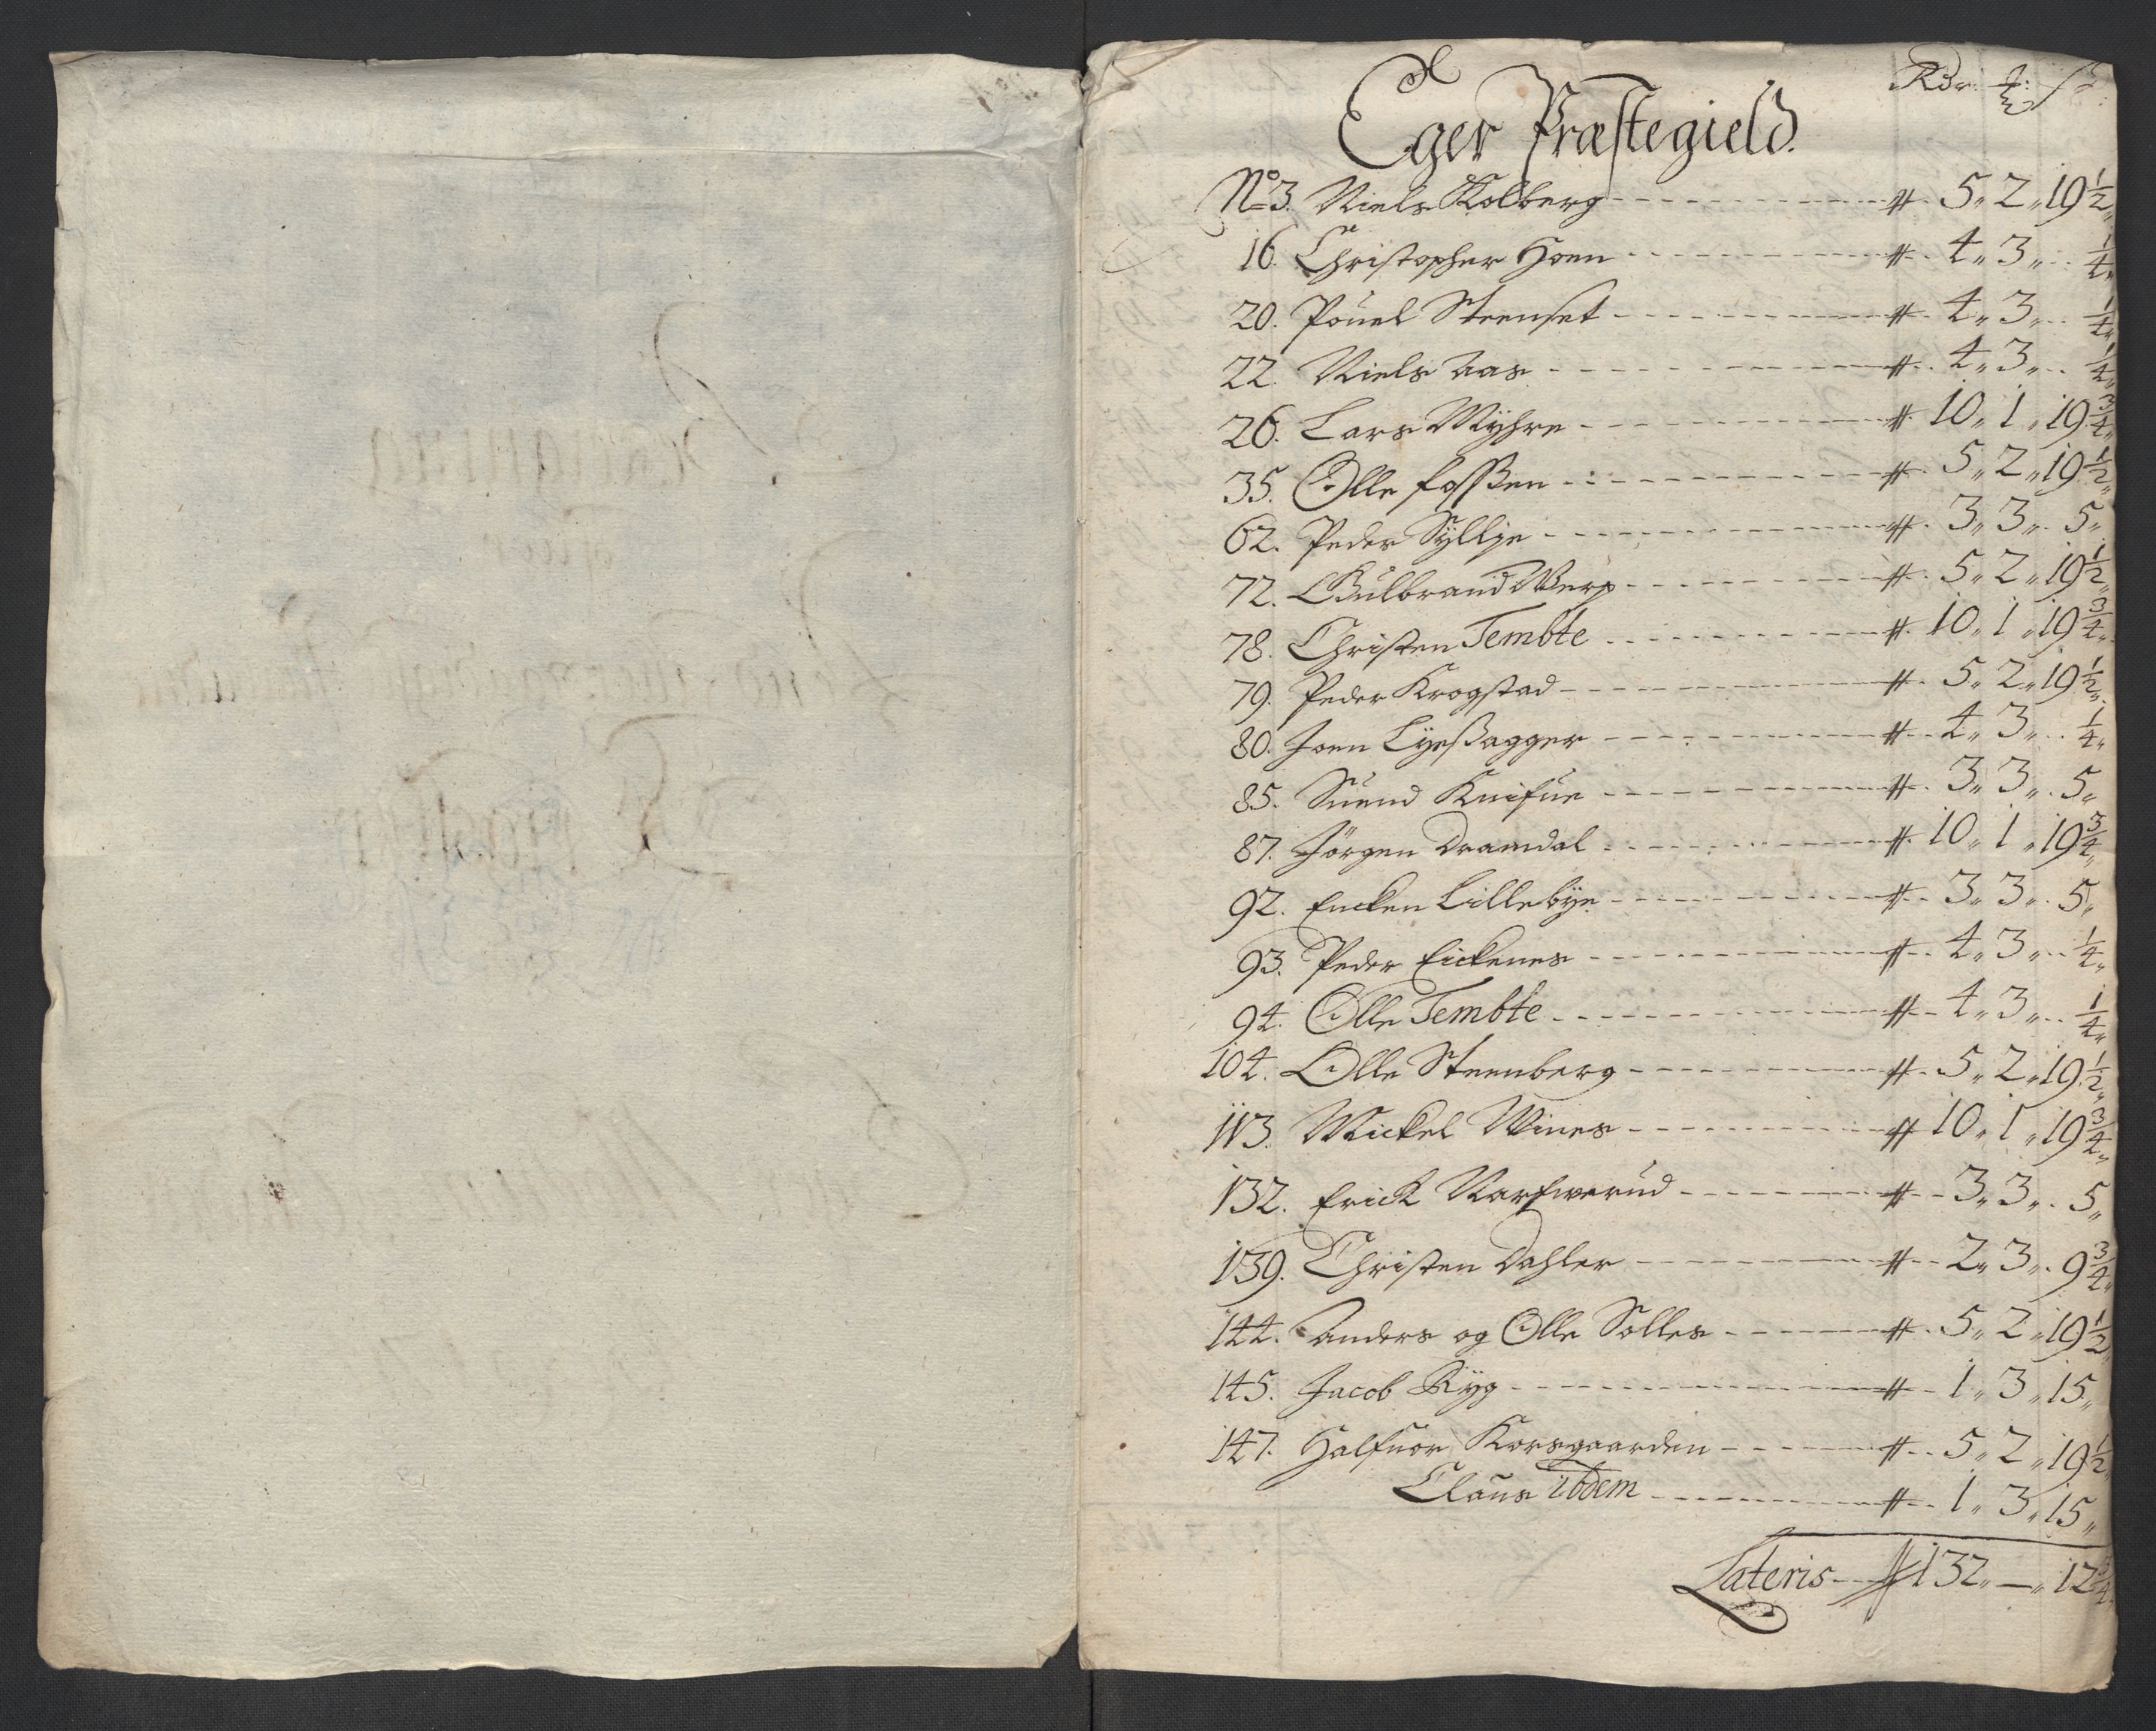 Rdr. ʒ: ß
Eger Præstegield.
No 3. Niels Kolberg # 5„ 2„ 19½„
16. Christopher Hoen # 4„ 3„ ¼„
20. Pouel Steenset # 4„ 3„ ¼„
22. Niels Aas # 4„ 3„ ¼„
26. Lars Myhre # 10„ 1„ 19¾„
35. Olle fossen # 5„ 2„ 19½„
62. Peder Syllje # 3„ 3„ 5„
72. Gulbrand Werp # 5„ 2„ 19½„
78. Christen Tembte # 10„ 1„ 19¾„
79. Peder Krogstad # 5„ 2„ 19½„
80. Joen Lyeßagger # 4„ 3„ ¼„
85. Suend Knifue # 3„ 3„ 5„
87. Jörgen Dramdal # 10„ 1„ 19¾„
92. Encken Lillebye # 3„ 3„ 5„
93. Peder Eickenes # 4„ 3„ ¼„
94. Olle Tembte # 4„ 3„ ¼„
104. Olle Steenberg # 5„ 2„ 19½„
113. Mickel Wines # 10„ 1„ 19¾„
132. Erick Narfwerud # 3„ 3„ 5„
139. Christen Dahler # 2„ 3„ 9¾„
144. Anders og Olle Solles # 5„ 2„ 19½„
145. Jacob Ryg # 1„ 3„ 15„
147. Halfuor Korsgaarden # 5„ 2„ 19½„
Claus ibdem # 1„ 3„ 15„
Lateris # 132„ —„ 12¾